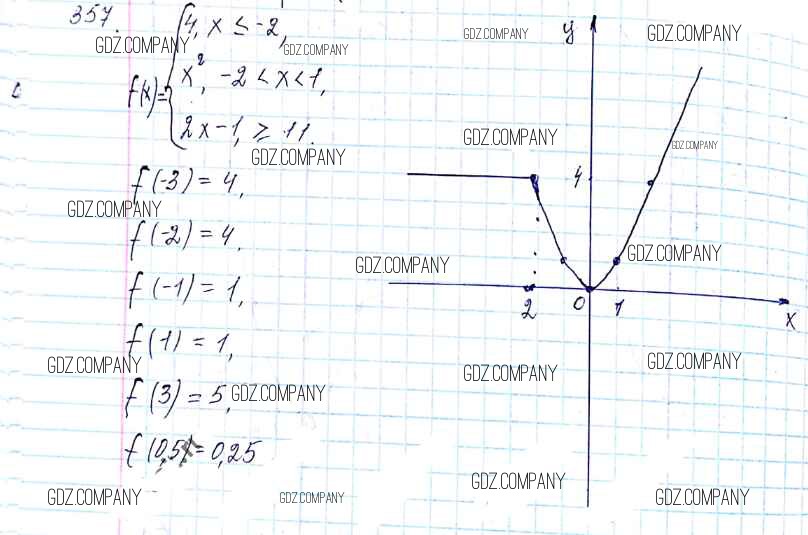 357.
GDZ.COMPANY
4, x ≤ -2,
GDZ.COMPANY
GDZ.COMPANY
y
GDZ.COMPANY
f(x)=
x², -2 < x < 1,
2x-1, ≥ 11.
GDZ.COMPANY
GDZ.COMPANY
GDZ.COMPANY
f(-3) = 4,
4
GDZ.COMPANY
f(-2) = 4,
GDZ.COMPANY
GDZ.COMPANY
f(-1) = 1,
2 0 1
x
f(1) = 1,
GDZ.COMPANY
GDZ.COMPANY
GDZ.COMPANY
f(3) = 5,
GDZ.COMPANY
f(0,5)=0,25
GDZ.COMPANY
GDZ.COMPANY
GDZ.COMPANY
GDZ.COMPANY